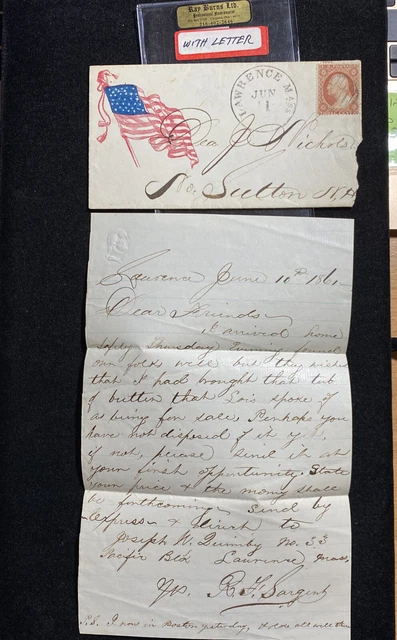 Ray Burns Ltd.
WITH LETTER
LAWRENCE MASS
JUN
11
Dea J Nichols
No. Sutton N.H
Lawrence June 10th 1861
Dear Friends
I arrived home
safely Thursday Evening found
our folks well but they wished
that I had brought that tub
of butter that Lois spoke of
as being for sale, Perhaps you
have not disposed of it yet,
if not, please send it at
your first oppertunity. State
your price & the money shall
be forthcoming. Send by
Express & Direct to
Joseph W. Quimby No. 33
Pacific Block Lawrence Mass.
Yrs. R. F. Sargent
P.S. I was in Boston yesterday, all well